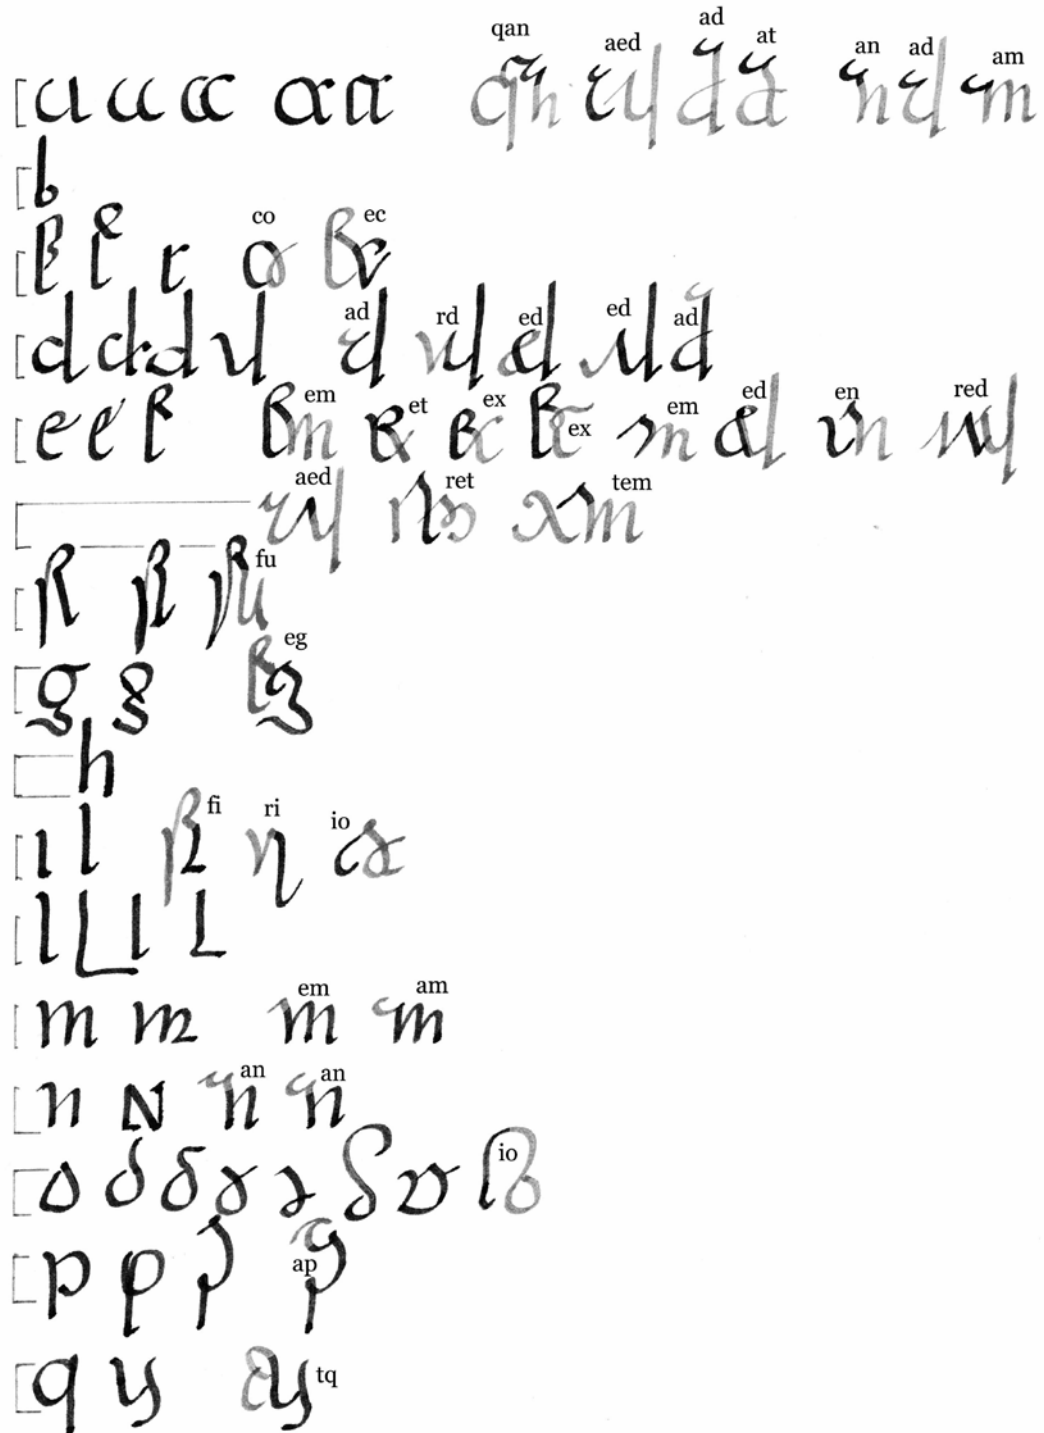 a a a a a qan aed ad at an ad am
b
c c c co ec
d d d d ad rd ed ed ad
e e e em et ex ex em ed en red
aed ret tem
f f fu
g g eg
h
i i fi ri io
l l l l
m m em am
n N an an
o o o o o o o io
p p p ap
q q tq